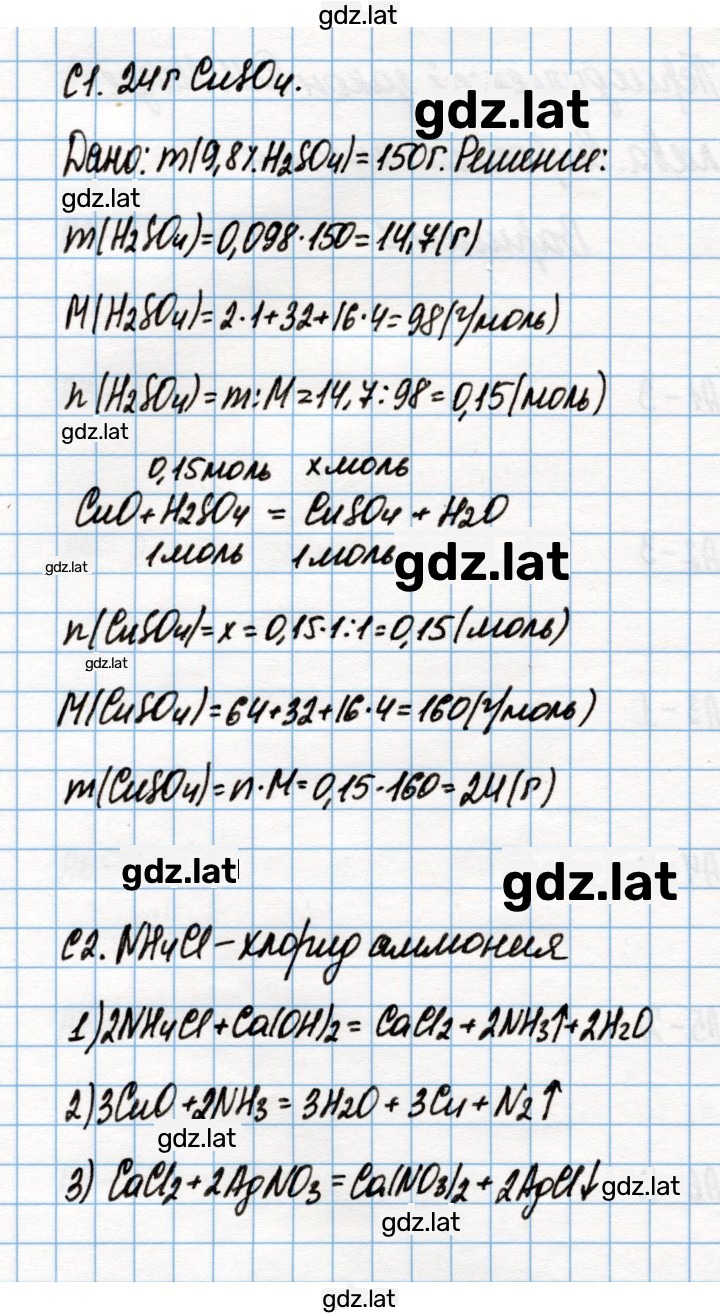 gdz.lat
С1. 24 г CuSO4.
gdz.lat
Дано: m(9,8%. H2SO4)=150г. Решение:
gdz.lat
m(H2SO4)=0,098·150=14,7(г)
M(H2SO4)=2·1+32+16·4=98(г/моль)
n(H2SO4)=m:M=14,7:98=0,15(моль)
gdz.lat
0,15моль хмоль
CuO+H2SO4 = CuSO4 + H2O
1моль 1моль
gdz.lat
gdz.lat
n(CuSO4)=x=0,15·1:1=0,15(моль)
gdz.lat
M(CuSO4)=64+32+16·4=160(г/моль)
m(CuSO4)=n·M=0,15·160=24(г)
gdz.lat
gdz.lat
С2. NH4Cl – хлорид аммония
1)2NH4Cl+Ca(OH)2= CaCl2+2NH3↑+2H2O
2)3CuO+2NH3= 3H2O+3Cu+N2↑
gdz.lat
3) CaCl2+2AgNO3=Ca(NO3)2+2AgCl↓
gdz.lat
gdz.lat
gdz.lat